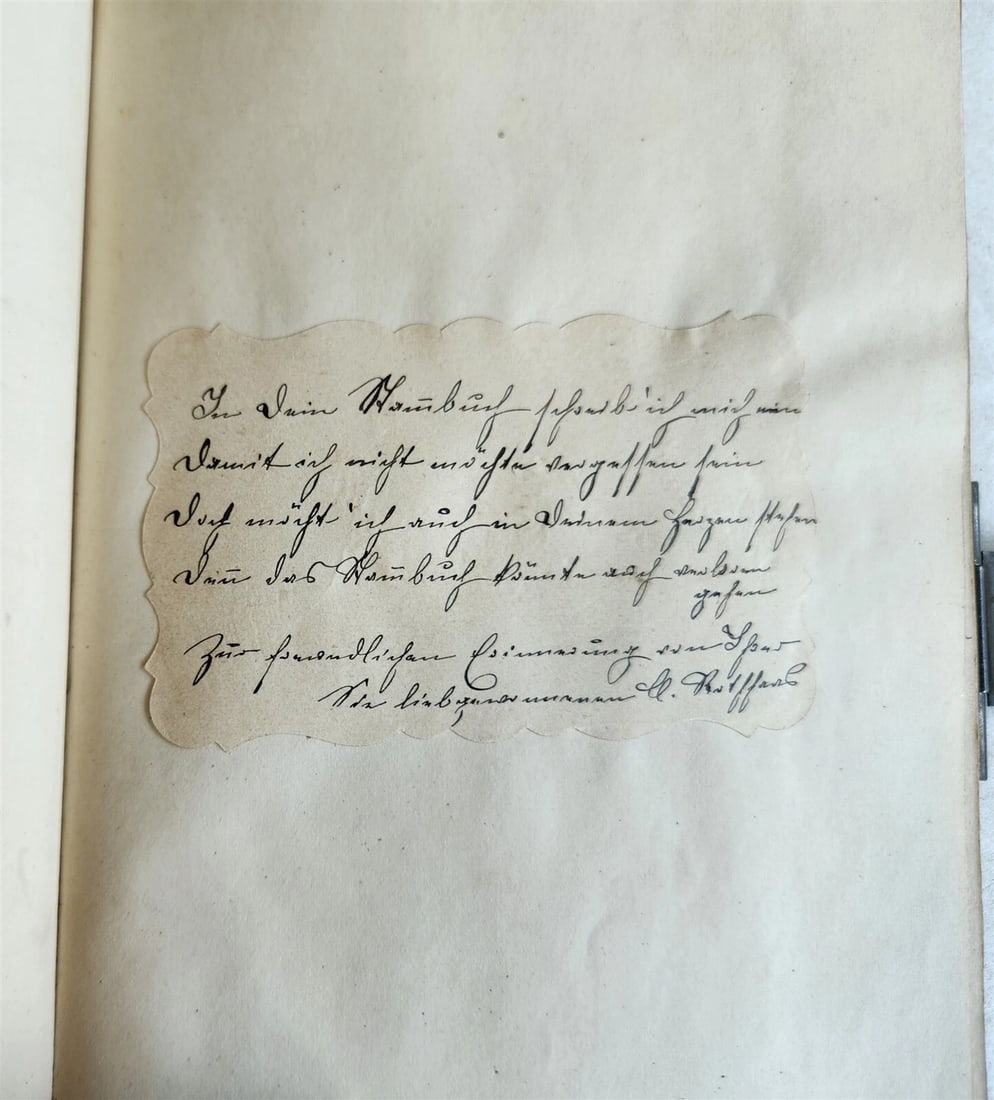 In Dein Stam̅buch schreib' ich mich ein
Damit ich nicht möchte vergessen sein
Doch möcht' ich auch in Deinem Herzen stehen
Den̅ das Stam̅buch könnte auch verloren
gehen
Zur freundlichen Erinnerung von Ihrer
Sie liebgewonnenen